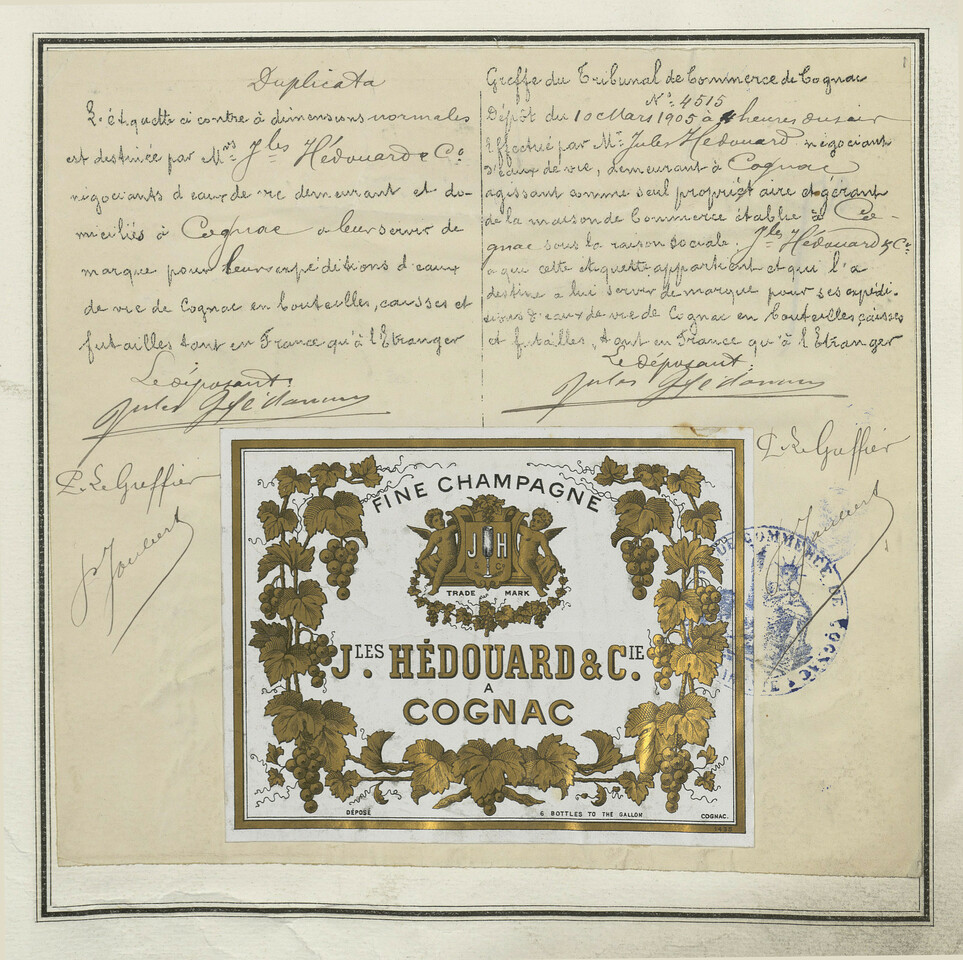 Duplicata
L'étiquette ci contre à dimensions normales
est destinée par Mrs Jles Hédouard & Co
négociants d'eaux de vie demeurant et do-
miciliés à Cognac a leur servir de
marque pour leurs expéditions d'eaux
de vie de Cognac en bouteilles, caisses et
futailles tant en France qu'à l'Etranger
Le déposant.
Jules Hédouard
P. Le Greffier
Greffe du Tribunal de Commerce de Cognac
No. 4515
Dépôt du 10 Mars 1905 à 4 heures du soir
Effectué par Mr. Jules Hédouard négociant
d'eaux de vie, demeurant à Cognac
agissant comme seul propriétaire et gérant
de la maison de Commerce établie à Co-
gnac sous la raison sociale. Jles Hédouard & Co
a qui cette étiquette appartient et qui l'a
destine a lui servir de marque pour ses expédi-
tions d'eaux de vie de Cognac en bouteilles, caisses
et futailles, tant en France qu'à l'Etranger
Le déposant.
Jules Hédouard
P. Le Greffier
FINE CHAMPAGNE
J H
& C
TRADE MARK
JLES. HÉDOUARD & CIE.
A
COGNAC
DÉPOSÉ
6 BOTTLES TO THE GALLON
COGNAC.
DE COMMERCE DE COGNAC